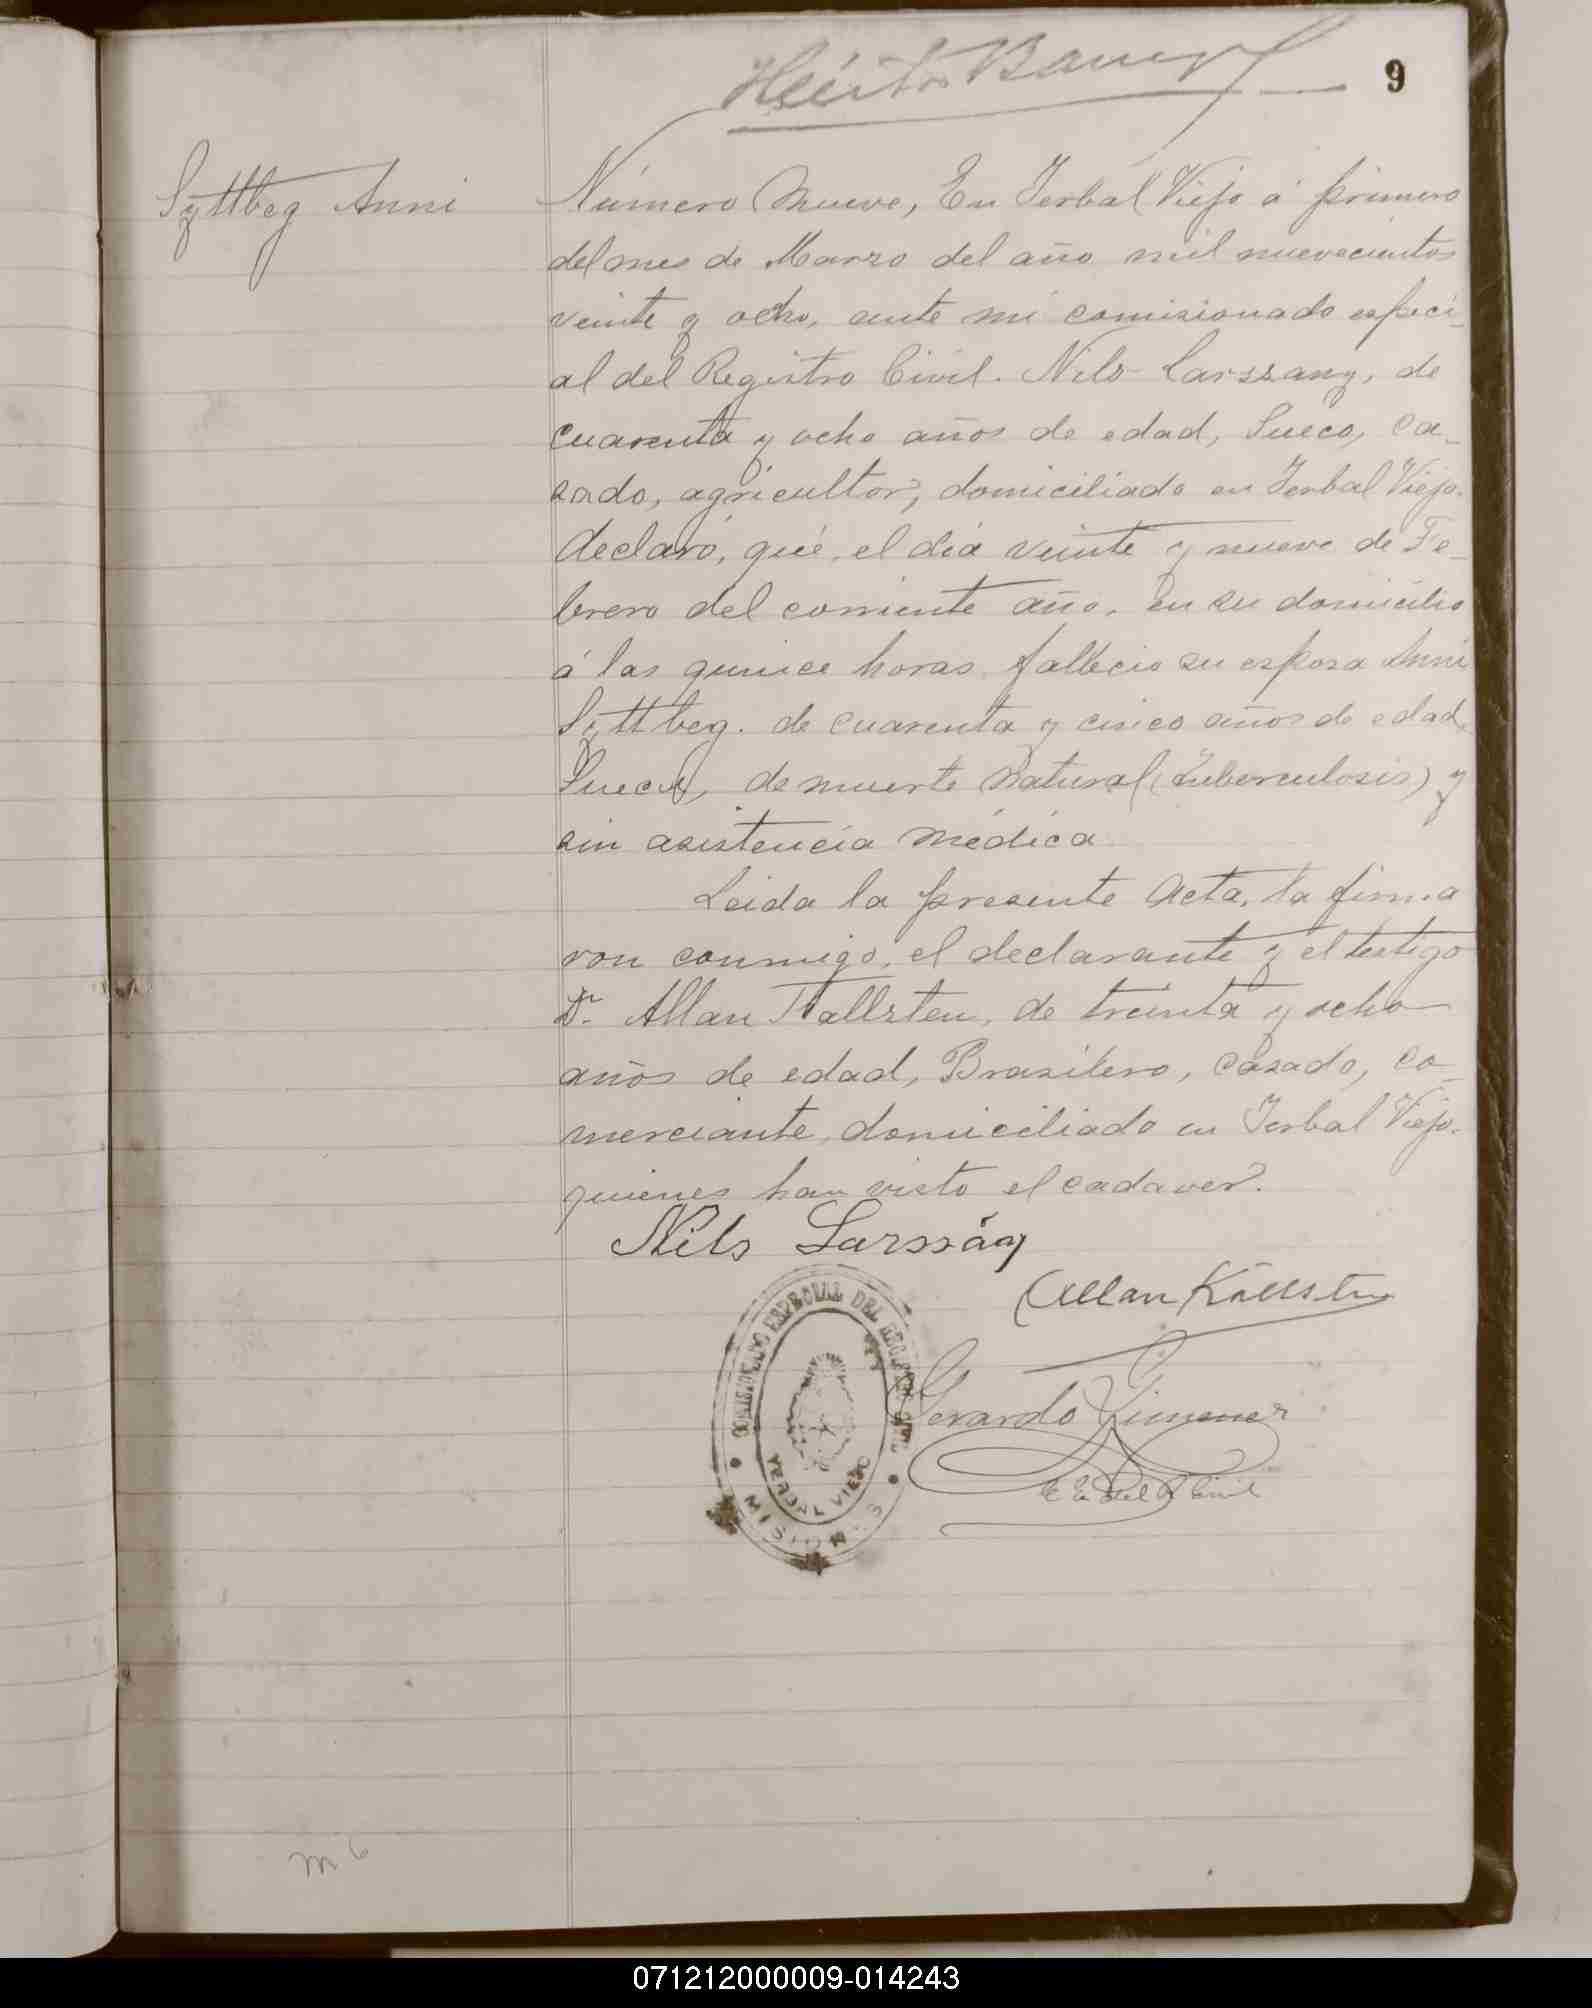 9
Syttbeg Anni
Número Nueve, En Yerbal Viejo á primero
del mes de Marzo del año mil nuevecientos
veinte y ocho, ante mi comisionado especi_
al del Registro Civil. Nils Larszany, de
cuarenta y ocho años de edad, Sueco, ca_
sado, agricultor, domiciliado en Yerbal Viejo.
declaró, qué, el día veinte y nueve de Fe_
brero del corriente año, en su domicilio
á las quince horas, fallecio su esposa Anni
Syttbeg. de cuarenta y cinco años de edad,
Sueca, de muerte natural (tuberculosis) y
sin asistencia médica
Leida la presente Acta, la firma
ron conmigo, el declarante y el testigo
Dr. Allan Kallsten, de treinta y ocho
años de edad, Brasilero, casado, co_
merciante, domiciliado en Yerbal Viejo.
quienes han visto el cadaver.
Nils Larssány
Allan Källsten
COMISIONADO ESPECIAL DEL REG. CIVIL
YERBAL VIEJO
MISIONES
Gerardo Gimenez
m 6
071212000009-014243